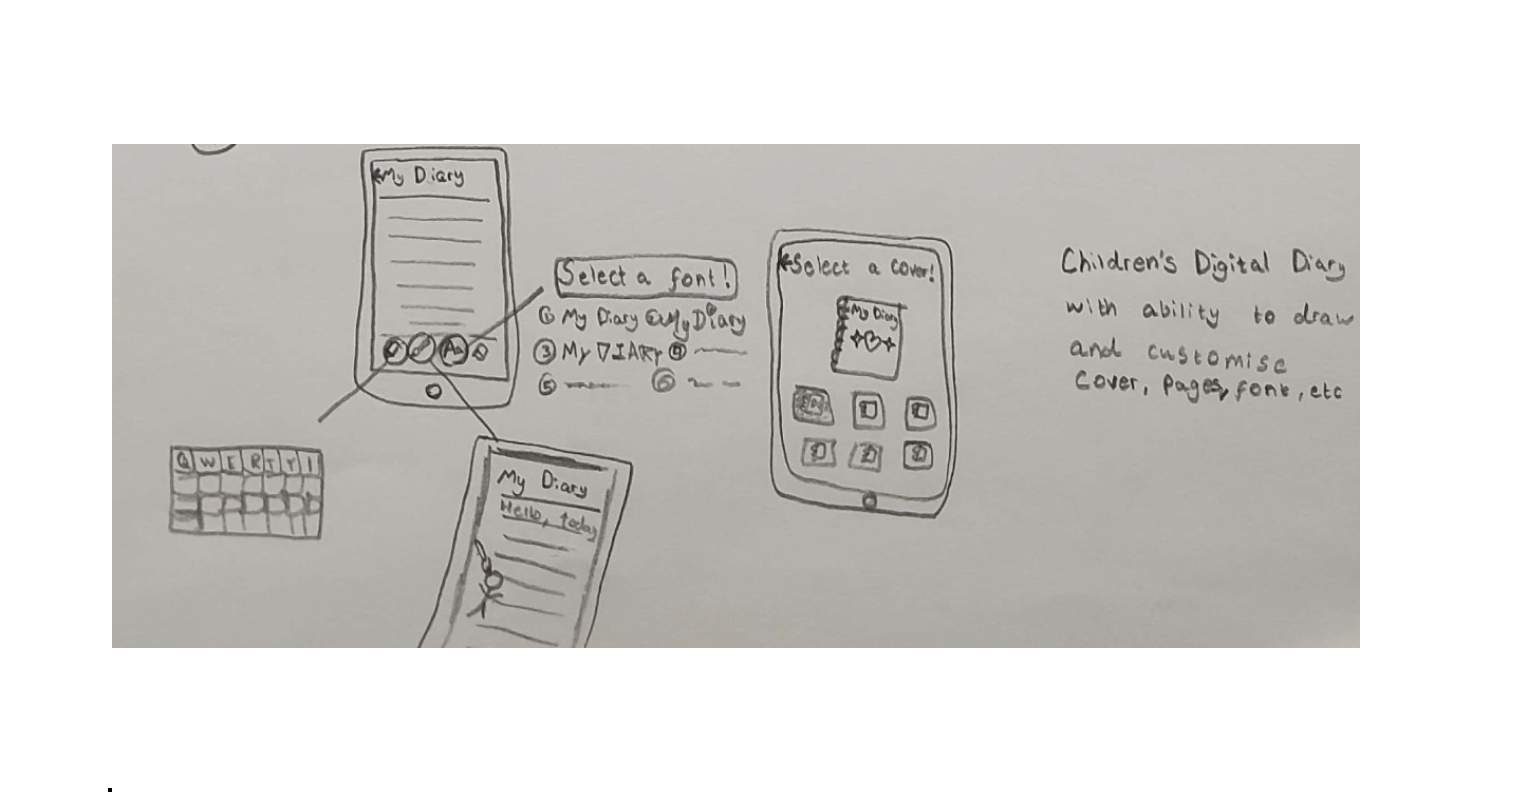 My Diary
Select a font!
① My Diary ② My Diary
③ My DIARY ④
⑤ ⑥
Aa
Q W E R T Y I
My Diary
Hello, today
Select a cover!
My Diary
Children's Digital Diary
with ability to draw
and customise
cover, pages, font, etc